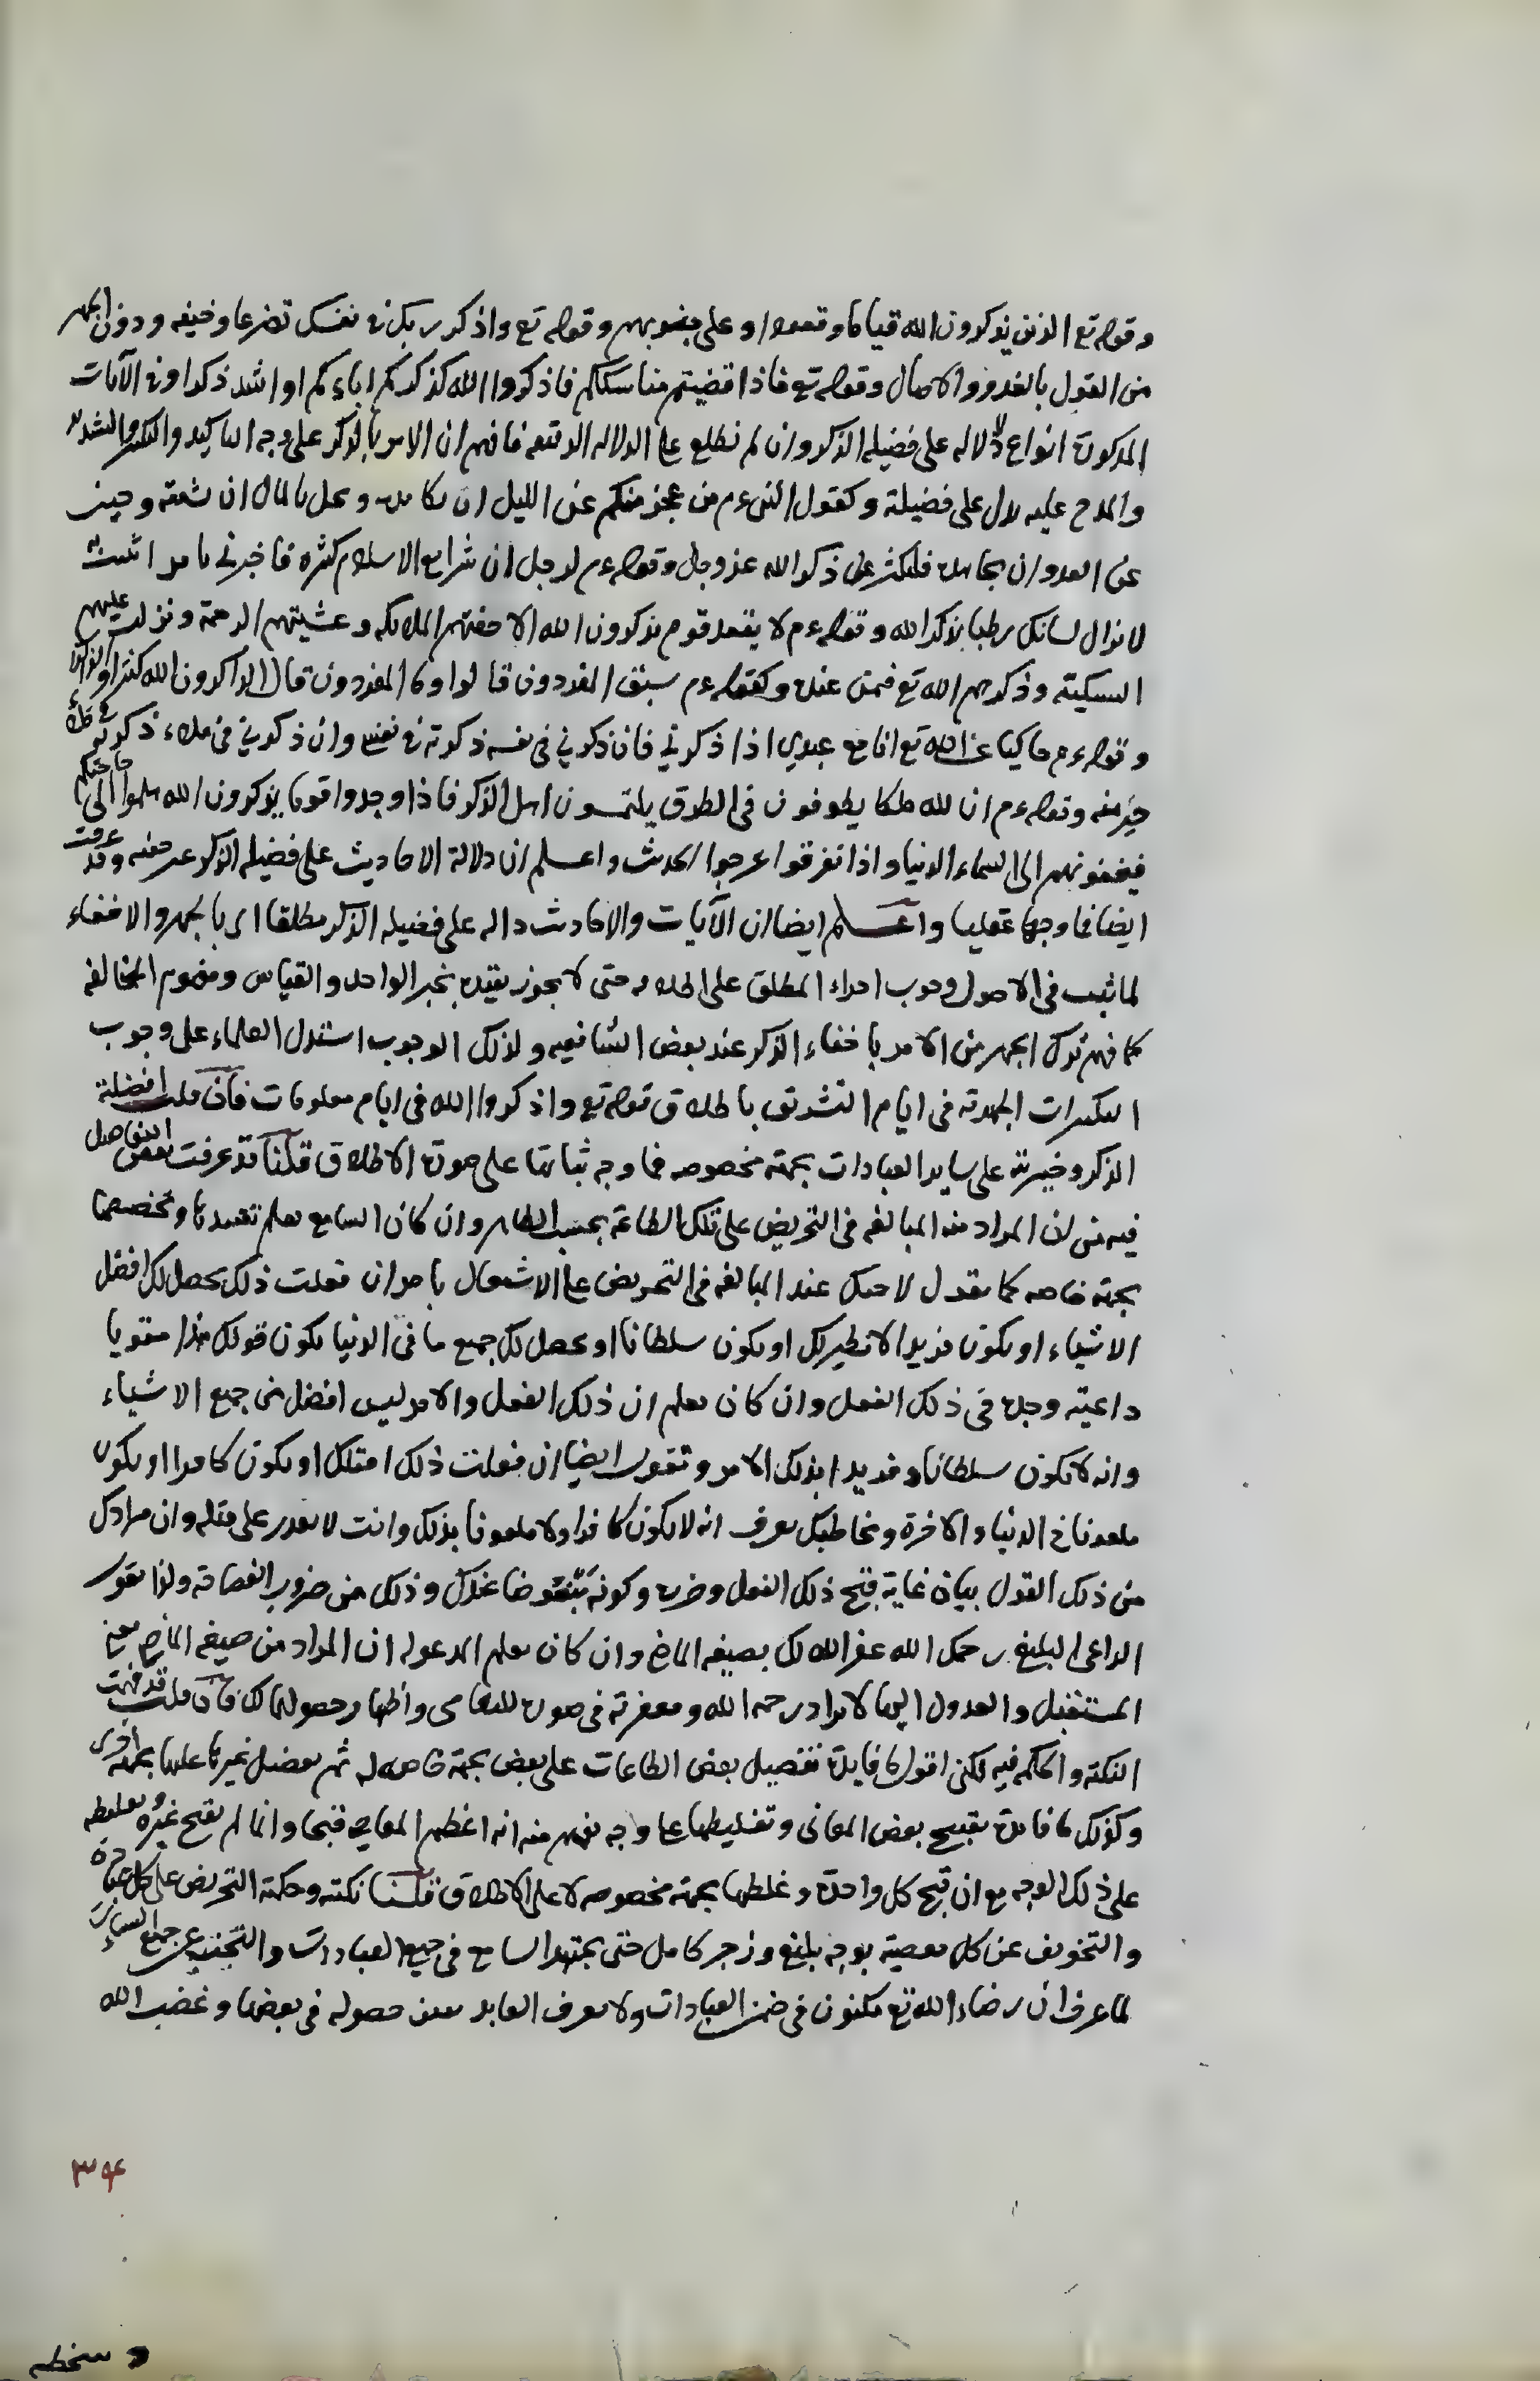 وقوله تع الذين يذكرون الله قياما وقعودا وعلى جنوبهم وقوله تع واذكر ربك في نفسك تضرعا وخيفه ودون الجهر
من القول بالغدو والآصال وقوله تع فاذا قضيتم مناسككم فاذكروا الله كذكركم اباءكم او اشد ذكرا وفي الآيات
المذكورة انواع دلاله على فضيلة الذكر وان لم نطلع على الدلاله الدقيقه فافهم ان الامر بالذكر على وجه التاكيد والتكثير والتشديد
والمدح عليه يدل على فضيلة وكقول النبي ءم من عجز منكم عن الليل ان يكابده وبخل بالمال ان ينفقه وجبن
عن العدو ان يجاهده فليكثر على ذكر الله عز وجل وقوله ءم لرجل ان شرايع الاسلام كثره فاخبرني بامر اتشبث به
لا يزال لسانك رطبا بذكر الله وقوله ءم لا يقعد قوم يذكرون الله الا حفتهم الملائكه وغشيتهم الرحمة ونزلت عليهم
السكينة وذكرهم الله تع فيمن عنده وكقوله ءم سبق المفردون قالوا وما المفردون قال الذاكرون الله كثيرا والذاكرات
وقوله ءم حاكيا عن الله تع انا مع عبدي اذا ذكرني فان ذكرني في نفسه ذكرته في نفسي وان ذكرني في ملاء ذكرته في ملاء
خير منه وقوله ءم ان لله ملكا يطوفون في الطرق يلتمسون اهل الذكر فاذا وجدوا قوما يذكرون الله هلموا الى حاجتكم
فيحفونهم الى السماء الدنيا واذا تفرقوا عرجوا الحديث واعلم ان دلالة الاحاديث على فضيله الذكر غير خفيه وقد عرفت
ايضا فاوجها عقليا واعلم ايضا ان الآيات والاحاديث داله على فضيله الذكر مطلقا اى بالجهر والاخفاء
لما ثبت في الاصول وجوب اجراء المطلق على اطلاقه حتى لا يجوز تقييده بخبر الواحد والقياس ومفهوم المخالفه
كما فهم ترك الجهر من الامر باخفاء الذكر عند بعض الشافعيه ولذلك الوجوب استدل العلماء على وجوب
التكبيرات الجهرية في ايام التشريق باطلاق قوله تع واذكروا الله في ايام معلومات فان قلت افضلية
الذكر وخيريته على ساير العبادات بجهته مخصوصه فما وجه ثباتها على صورة الاطلاق قلنا قد عرفت بعض التفاصيل
فيه من ان المراد منه المبالغه في التحريض على تلك الطاعة بحسب الظاهر وان كان السامع يعلم تقييدها وتخصيصها
بجهة خاصه كما يقول لاحدك عند المبالغه في التحريض على الاشتغال بامر ان فعلت ذلك يحصل لك افضل
الاشياء او يكون فريدا لا نظير لك او يكون سلطانا او يحصل لك جميع ما في الدنيا يكون قولك هذا مقويا
داعيته وجده في ذلك الفعل وان كان يعلم ان ذلك الفعل والامر ليس افضل من جميع الاشياء
وانه لا يكون سلطانا وفريدا بذلك الامر وتقول ايضا ان فعلت ذلك اقتلك او يكون كافرا او يكون
ملعونا في الدنيا والاخرة ومخاطبك يعرف انه لا يكون كافرا ولا ملعونا بذلك وانت لا تقدر على قتله وان مرادك
من ذلك القول بيان غاية قبح ذلك الفعل وضره وكونه مبغوضا عندك وذلك من ضروب الفصاحه ولذا تقول
الداعي البليغ رحمك الله غفر الله لك بصيغه الماضي وان كان يعلم المدعو له ان المراد من صيغه الماضي معنى
المستقبل والعدول اليها لايراد رحمه الله ومغفرته في صورة التفاؤل واظهار حصولها لك فان قلت قد فهمت
النكته والحكم فيه لكن اقول ما فايدة تفضيل بعض الطاعات على بعض بجهة خاصه له ثم يفضل غيرها عليها بجهة اخرى
وكذلك ما فايدة تقبيح بعض المعاصي وتغليظها على وجه يفهم منه انه اعظم المعاصي قبحا وانما لم يقبح غيره ويغلظه
على ذلك الوجه مع ان قبح كل واحدة وغلظها بجهته مخصوصه لا على الاطلاق قلنا نكتته وحكمته التحريض على كل عبادة
والتخويف عن كل معصية بوجه بليغ وزجر كامل حتى يجتهد السامع في جميع العبادات والتجنب عن جميع السيئات
لما عرف ان رضاء الله تع مكنون في ضمن العبادات ولا يعرف العابد معين حصوله في بعضها وغضب الله
٣٩٤
وسخطه